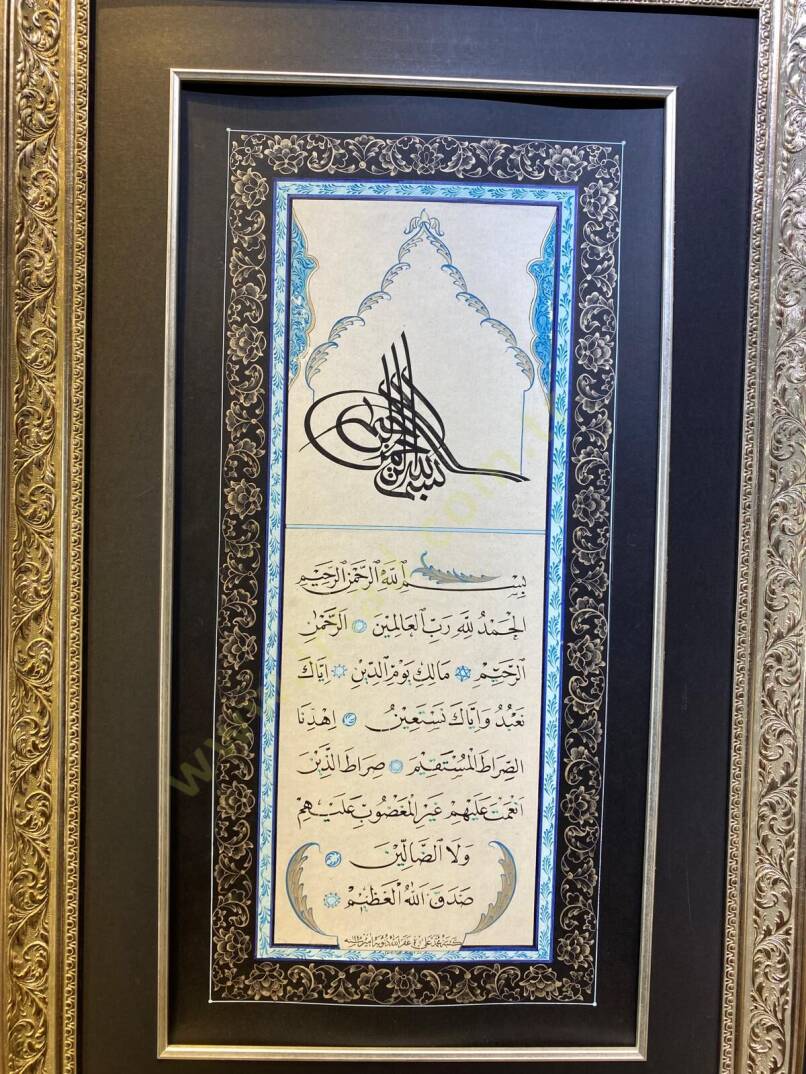 بسم الله الرحمن الرحيم
بِسْمِ اللهِ الرَّحْمٰنِ الرَّحِيمِ
الْحَمْدُ لِلّٰهِ رَبِّ الْعَالَمِينَ الرَّحْمٰنِ
الرَّحِيمِ مَالِكِ يَوْمِ الدِّينِ اِيَّاكَ
نَعْبُدُ وَاِيَّاكَ نَسْتَعِينُ اِهْدِنَا
الصِّرَاطَ الْمُسْتَقِيمَ صِرَاطَ الَّذِينَ
اَنْعَمْتَ عَلَيْهِمْ غَيْرِ الْمَغْضُوبِ عَلَيْهِمْ
وَلَا الضَّالِّينَ
صَدَقَ اللهُ الْعَظِيمُ